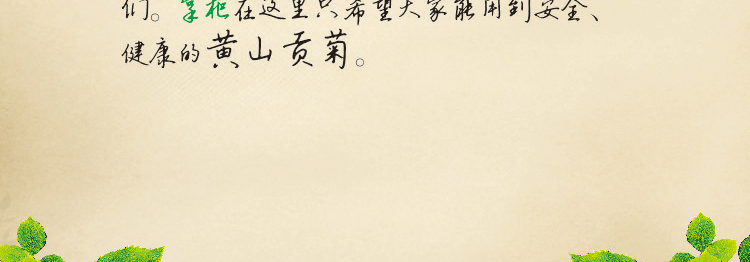 们。掌柜在这里只希望大家能用到安全、
健康的黄山贡菊。